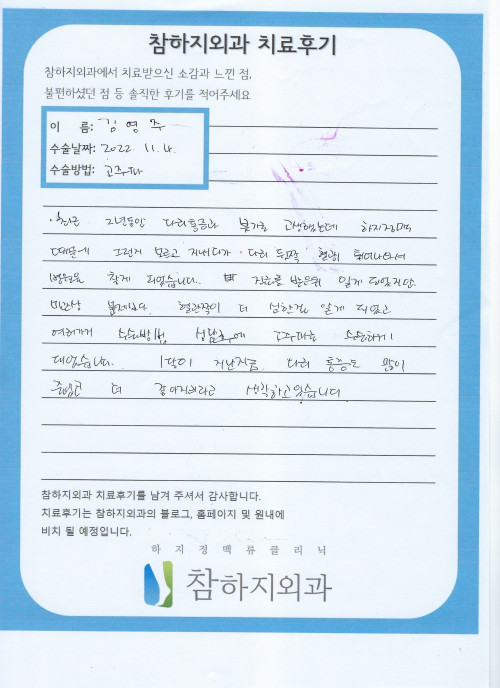 참하지외과 치료후기
참하지외과에서 치료받으신 소감과 느낀 점,
불편하셨던 점 등 솔직한 후기를 적어주세요
이 름: 김영주
수술날짜: 2022. 11. 4.
수술방법: 고주파
·최근 2년동안 다리통증과 붓기로 고생했는데 하지정맥
때문에 그런지 모르고 지내다가 다리 뒤쪽 혈관 튀어나와서
병원을 찾게 되었습니다. 진료를 받은뒤 알게 되었지만
미관상 문제보다 혈관쪽이 더 심한걸 알게 되었고
여러가지 수술방법 상담후에 고주파로 수술하게
되었습니다. 1달이 지난지금 다리 통증도 많이
줄었고 더 좋아지리라고 생각하고있습니다
참하지외과 치료후기를 남겨 주셔서 감사합니다.
치료후기는 참하지외과의 블로그, 홈페이지 및 원내에
비치 될 예정입니다.
하지정맥류클리닉
참하지외과